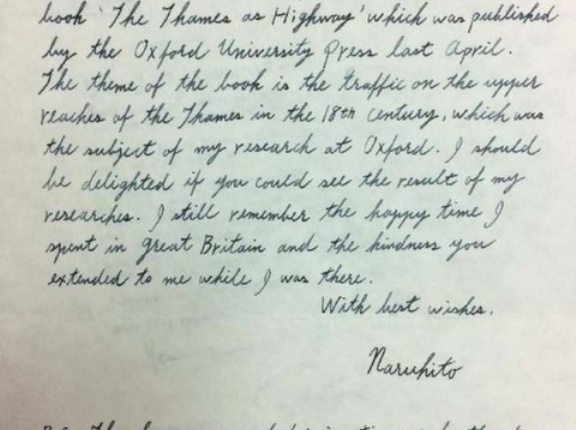 book 'The Thames as Highway' which was published
by the Oxford University Press last April.
The theme of the book is the traffic on the upper
reaches of the Thames in the 18th century, which was
the subject of my research at Oxford. I should
be delighted if you could see the result of my
researches. I still remember the happy time I
spent in great Britain and the kindness you
extended to me while I was there.
With best wishes.
Naruhito